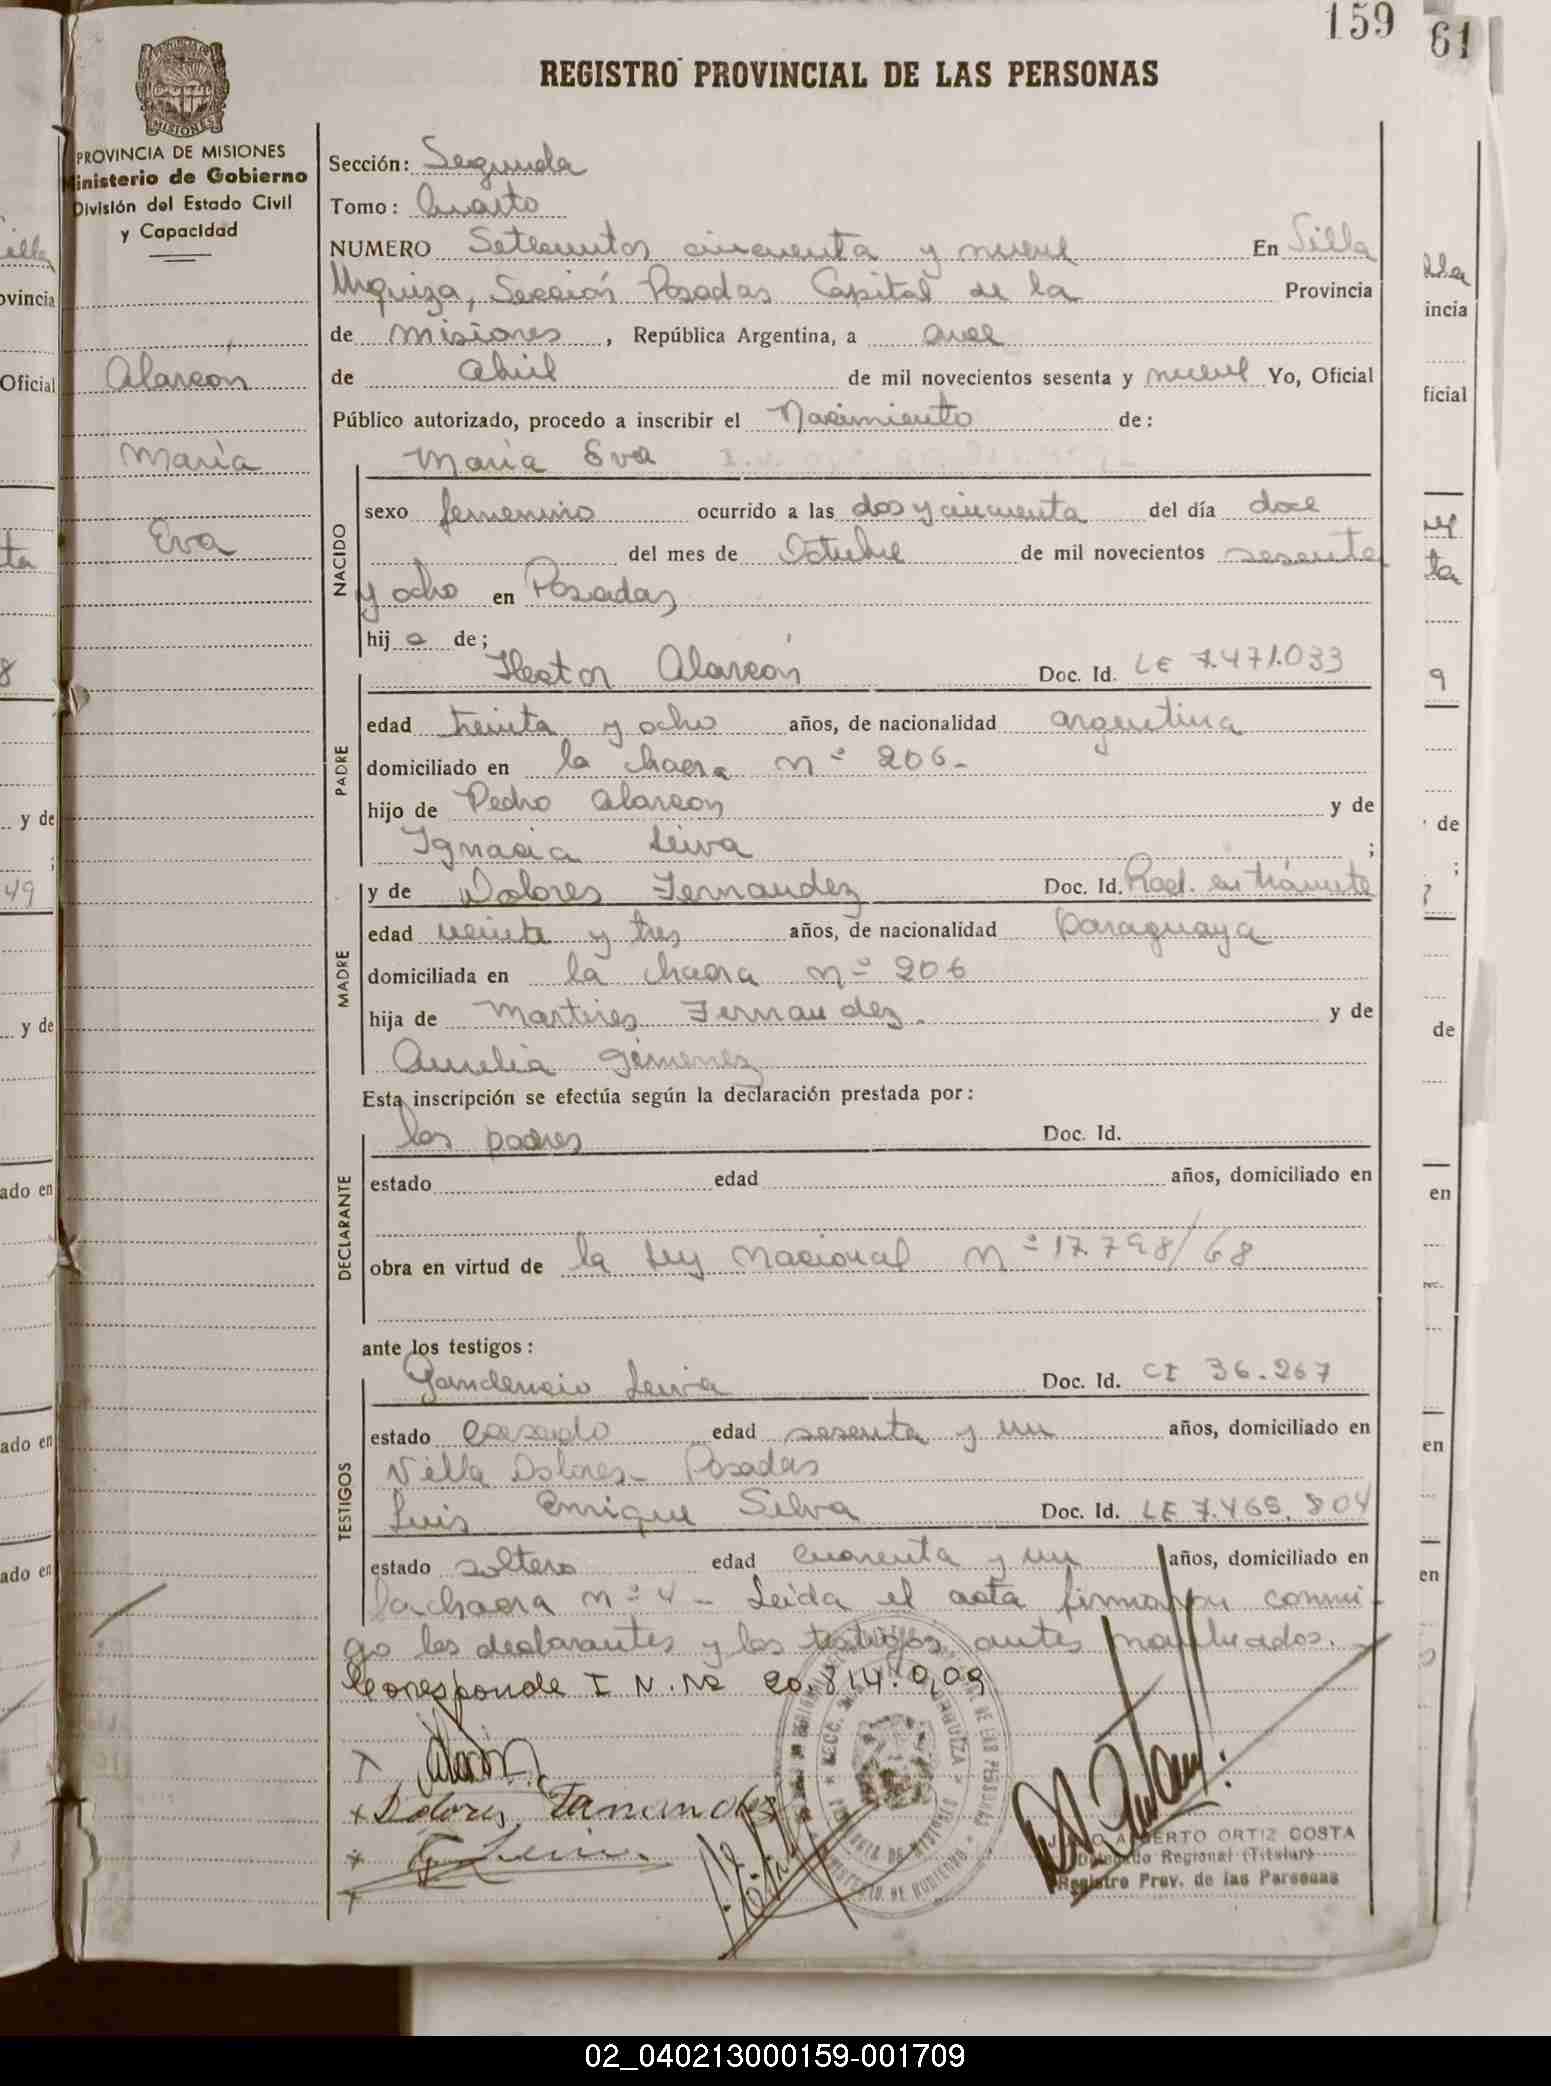 159
61
REGISTRO PROVINCIAL DE LAS PERSONAS
MISIONES
PROVINCIA DE MISIONES
Ministerio de Gobierno
División del Estado Civil
y Capacidad
Alarcón
María
Eva
Sección: Segunda
Tomo: Cuarto
NUMERO Setecientos cincuenta y nueve En Villa
Urquiza, Sección Posadas Capital de la Provincia
de Misiones, República Argentina, a once
de abril de mil novecientos sesenta y nueve Yo, Oficial
Público autorizado, procedo a inscribir el Nacimiento de:
María Eva
NACIDO
sexo femenino ocurrido a las dos y cincuenta del día doce
del mes de Octubre de mil novecientos sesenta
y ocho en Posadas
hij a de;
PADRE
Hector Alarcón Doc. Id. LE 7.471.033
edad treinta y ocho años, de nacionalidad argentina
domiciliado en la chacra n° 206-
hijo de Pedro Alarcon y de
Ignacia Leiva ;
MADRE
y de Dolores Fernandez Doc. Id. Rad. en trámite
edad veinte y tres años, de nacionalidad paraguaya
domiciliada en la chacra n° 206
hija de Martires Fernandez. y de
Aurelia Gimenez
Esta inscripción se efectúa según la declaración prestada por:
DECLARANTE
los padres Doc. Id.
estado edad años, domiciliado en
obra en virtud de la Ley Nacional N° 17.798/68
ante los testigos:
TESTIGOS
Gaudencio Leiva Doc. Id. CI 36.267
estado casado edad sesenta y un años, domiciliado en
Villa Dolores- Posadas
Luis Enrique Silva Doc. Id. LE 7.465.804
estado soltero edad cuarenta y un años, domiciliado en
la chacra n° 4 - Leida el acta firman conmi-
go los declarantes y los testigos antes nombrados.
Corresponde I N. No 20.814.009
Dolores Fernandez
JULIO ALBERTO ORTIZ COSTA
Delegado Regional (Titular)
Registro Prov. de las Personas
02_040213000159-001709